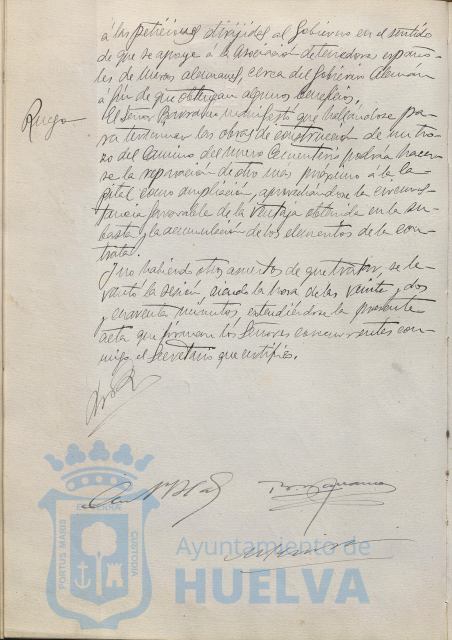 á las peticiones dirigidas al Gobierno en el sentido
de que se apoye á la Asociación de tenedores españo-
les de marcos alemanes, cerca del Gobierno Aleman
á fin de que obtengan algunos beneficios.
Ruego
El Señor manifestó que hallándose pa-
ra terminar las obras de construcción de un tro-
zo del Camino del nuevo Cementerio podría hacer-
se la reparación de otro mas próximo á la Ca-
pital como ampliación, aprovechándose la circuns-
tancia favorable de la ventaja obtenida en la su-
basta y la acumulación de los elementos de la con-
trata.
Y no habiendo otros asuntos de que tratar, se le-
vantó la sesión siendo la hora de las veinte y dos
y cuarenta minutos, extendiéndose la presente
acta que firman los Señores concurrentes con-
migo el Secretario que certifico.
PORTUS MARIS
ET TERRÆ
CUSTODIA
Ayuntamiento de
HUELVA